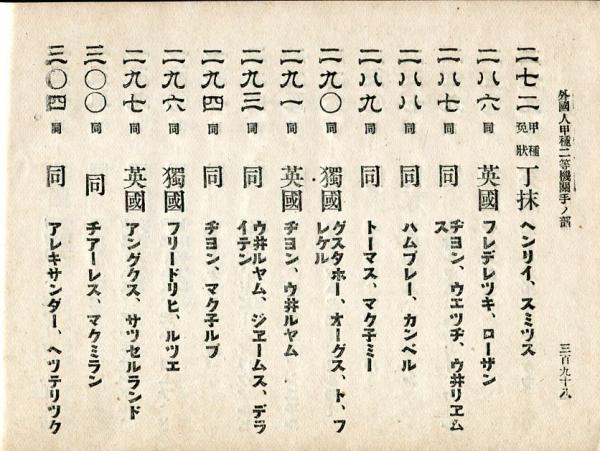 外國人甲種二等機關手ノ部
三百九十八
二七二 甲種免狀 丁抹 ヘンリイ、スミツス
二八六 同 英國 フレデレツキ、ローザン
二八七 同 同 ヂヨン、ウエツヂ、ウ井リヱムス
二八八 同 同 ハムブレー、カンベル
二八九 同 同 トーマス、マク子ミー
二九〇 同 獨國 グスタホー、オーグス、ト、フレケル
二九一 同 英國 ヂヨン、ウ井ルヤム
二九三 同 同 ウ井ルヤム、ジヱームス、デライテン
二九四 同 同 ヂヨン、マク子ルブ
二九六 同 獨國 フリードリヒ、ルツエ
二九七 同 英國 アングクス、サツセルランド
三〇〇 同 同 チアーレス、マクミラン
三〇四 同 同 アレキサンダー、ヘツテリツク